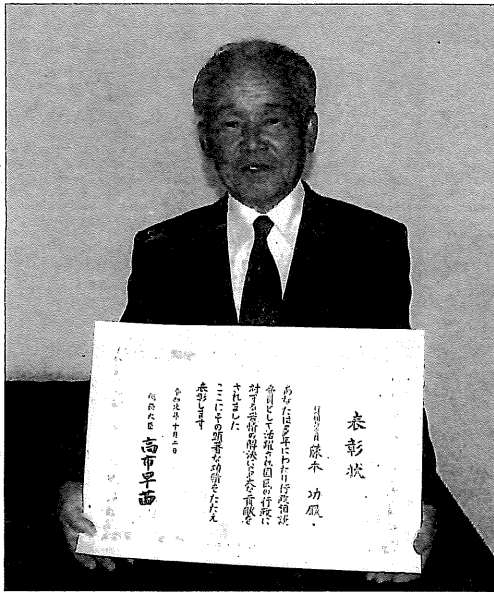 表彰状
行政相談委員 藤本 功殿
あなたは多年にわたり行政相談
委員として活躍され国民の行政に
対する苦情の解決に多大な貢献を
されました
ここにその顕著な功績をたたえ
表彰します
令和元年十月二日
総務大臣 高市早苗